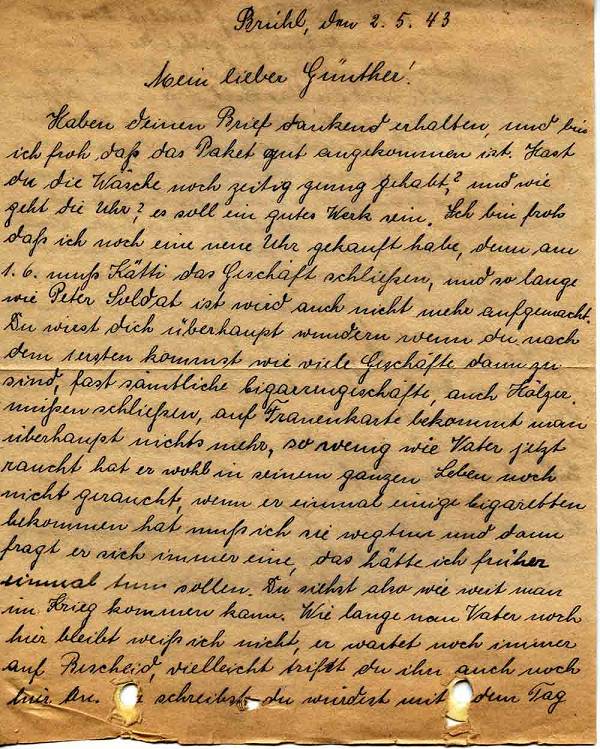 Brühl, den 2. 5. 43
Mein lieber Günther!
Haben deinen Brief dankend erhalten, und bin
ich froh daß das Paket gut angekommen ist. Hast
du die Wäsche noch zeitig genug gehabt,? und wie
geht die Uhr?, es soll ein gutes Werk sein. Ich bin froh
daß ich noch eine neue Uhr gekauft habe, denn am
1. 6. muß Kätti das Geschäft schließen, und so lange
wie Peter Soldat ist wird auch nicht mehr aufgemacht.
Du wirst dich überhaupt wundern wenn du nach
dem ersten kommst wie viele Geschäfte dann zu
sind, fast sämtliche Cigarrengeschäfte, auch Hölzer.
müßen schließen, auf Frauenkarte bekommt man
überhaupt nichts mehr, so wenig wie Vater jetzt
raucht hat er wohl in seinem ganzen Leben noch
nicht geraucht, wenn er einmal einige Cigaretten
bekommen hat muß ich sie wegtun und dann
fragt er sich immer eine, das hätte ich früher
einmal tun sollen. Du siehst also wie weit man
im Krieg kommen kann. Wie lange nun Vater noch
hier bleibt weiß ich nicht, er wartet noch immer
auf Bescheid, vielleicht trifst du ihn auch noch
hier an. schreibst du würdest mit dem Tag